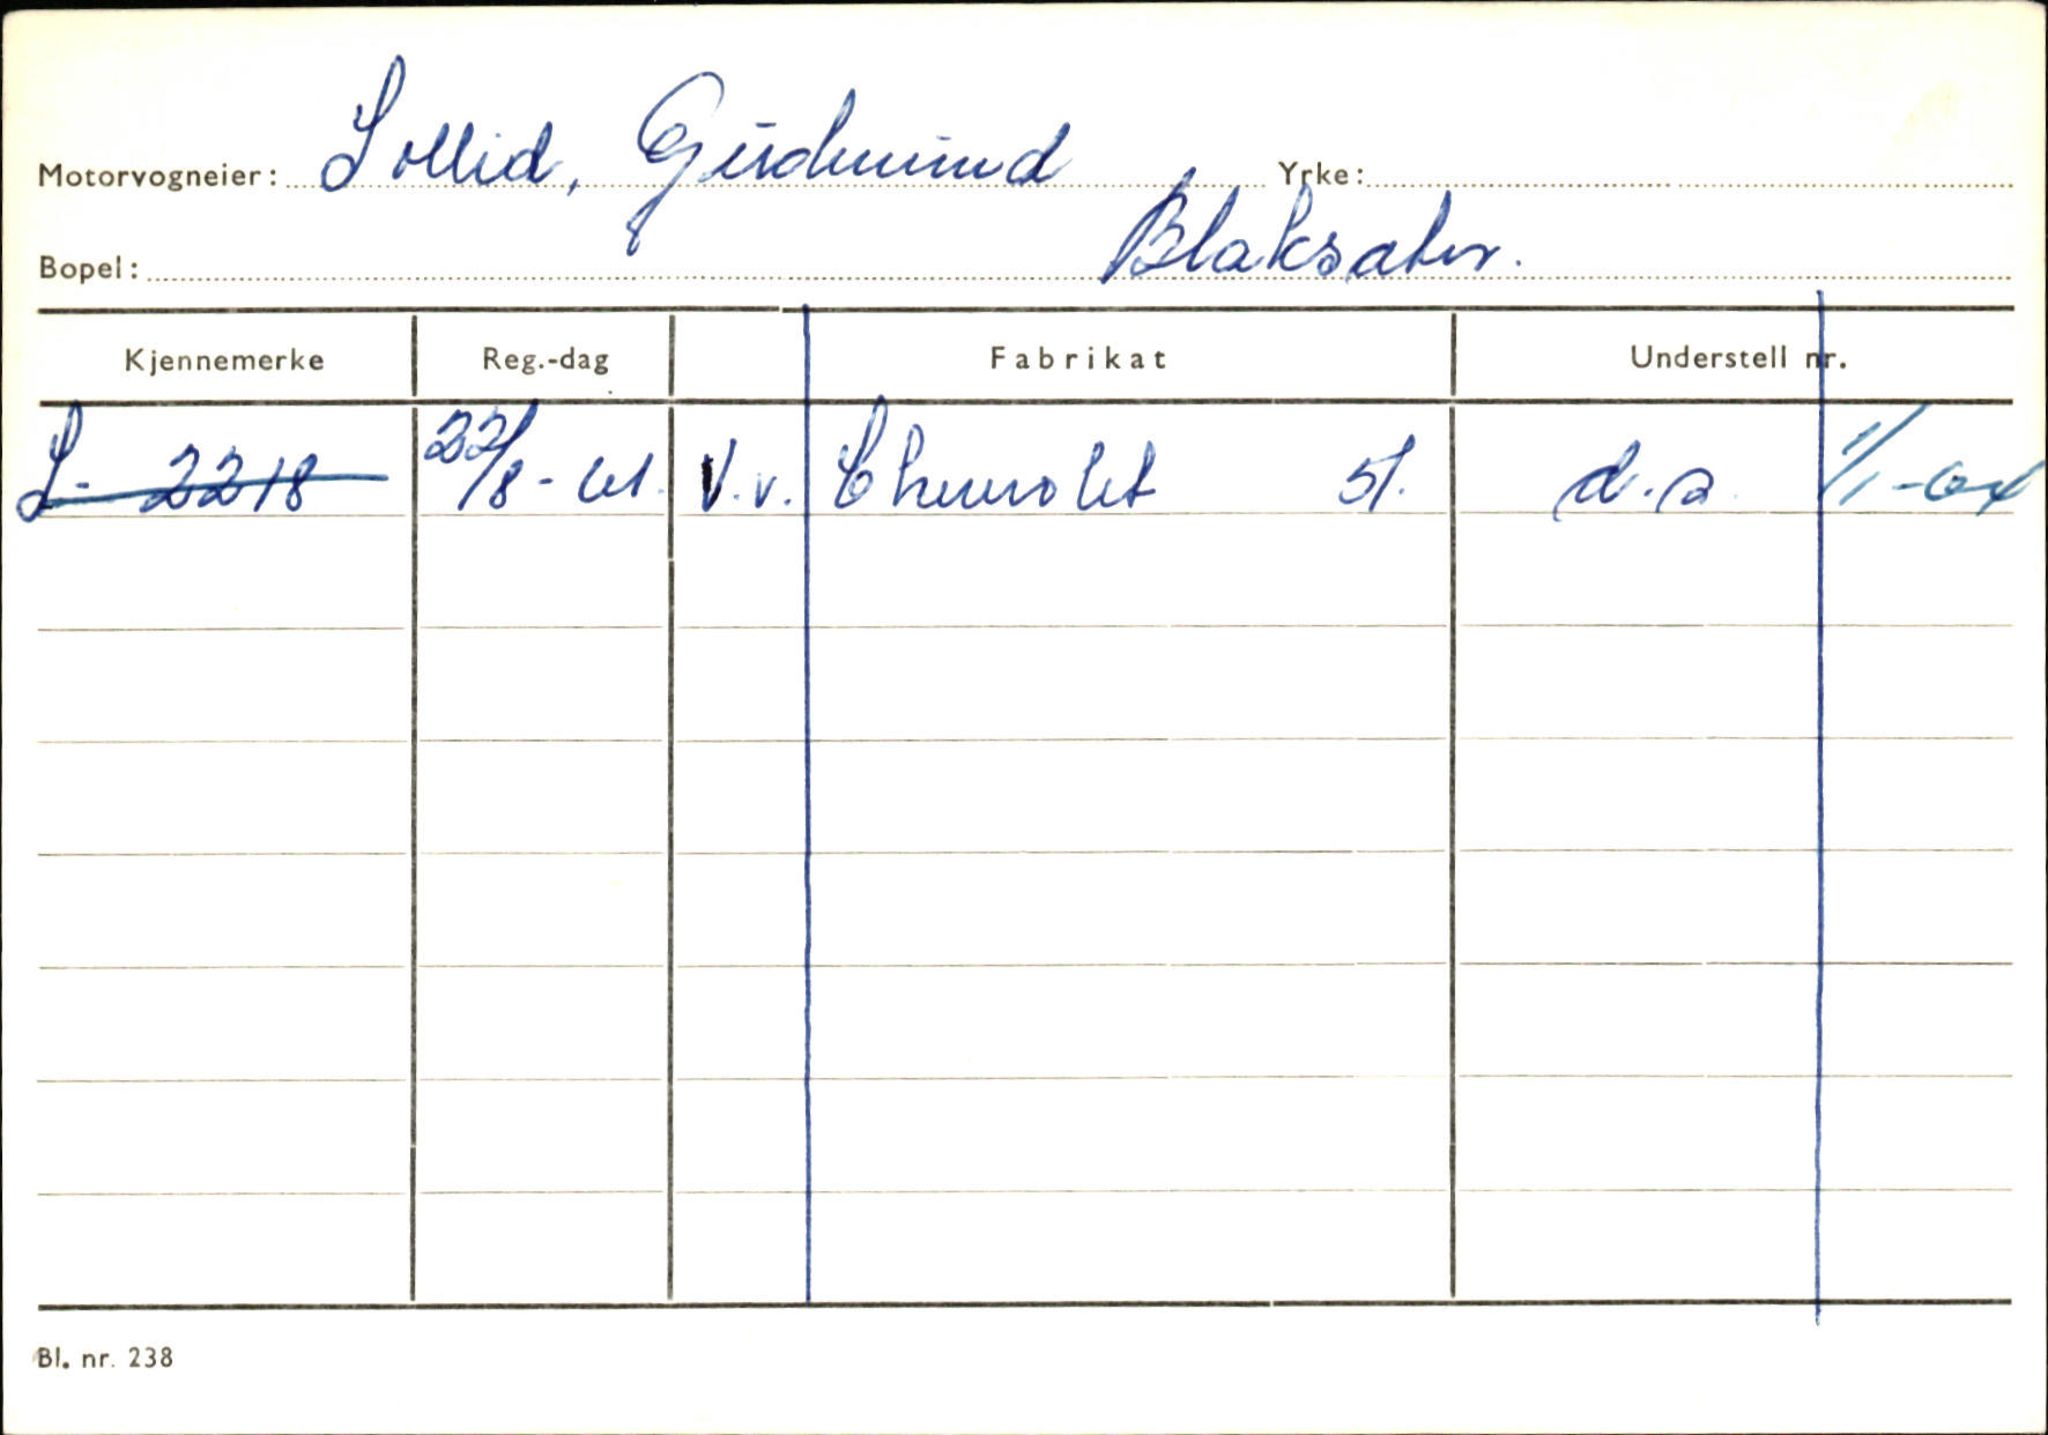 Motorvogneier: Sollid, Gudmund Yrke:
Bopel: Blaksæter.
Kjennemerke Reg.-dag Fabrikat Understell nr.
S- 2218 22/8-61. V.v. Chevrolet 51. d.a. 1/1-64
Bl. nr. 238